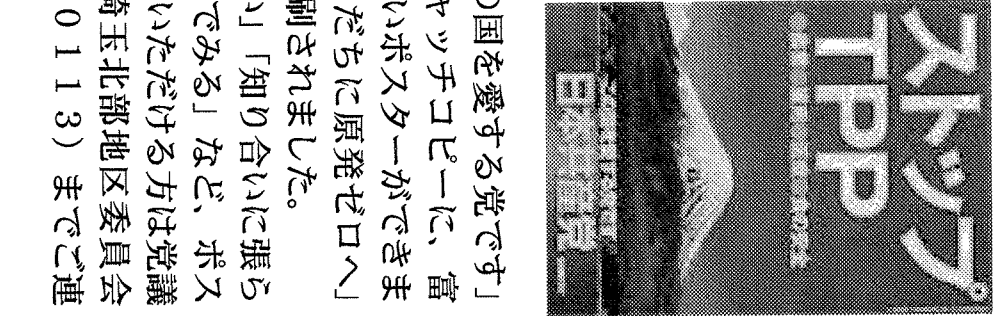 ストップ
TPP
日本共産党
の国を愛する党です」
ャッチコピーに、富
いポスターができま
だちに原発ゼロへ」
刷されました。
い」「知り合いに張ら
でみる」など、ポス
いただける方は党議
埼玉北部地区委員会
０１１３）までご連